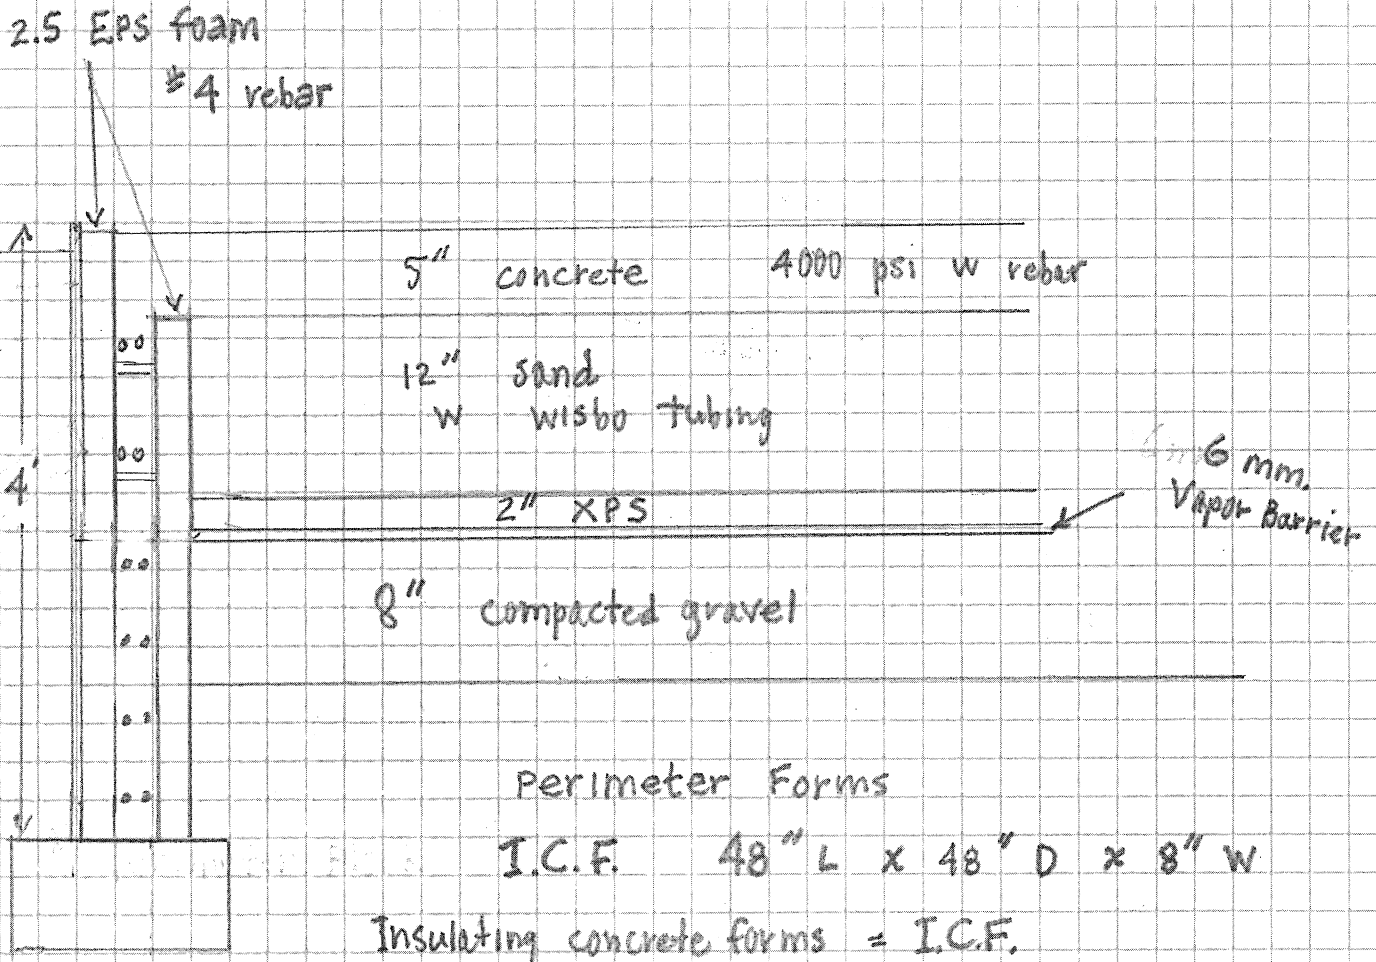 2.5 EPS foam
#4 rebar
5" concrete 4000 psi w rebar
12" sand
w wisbo tubing
4'
6 mm.
Vapor Barrier
2" XPS
8" compacted gravel
Perimeter Forms
I.C.F. 48" L x 48" D x 8" W
Insulating concrete forms = I.C.F.